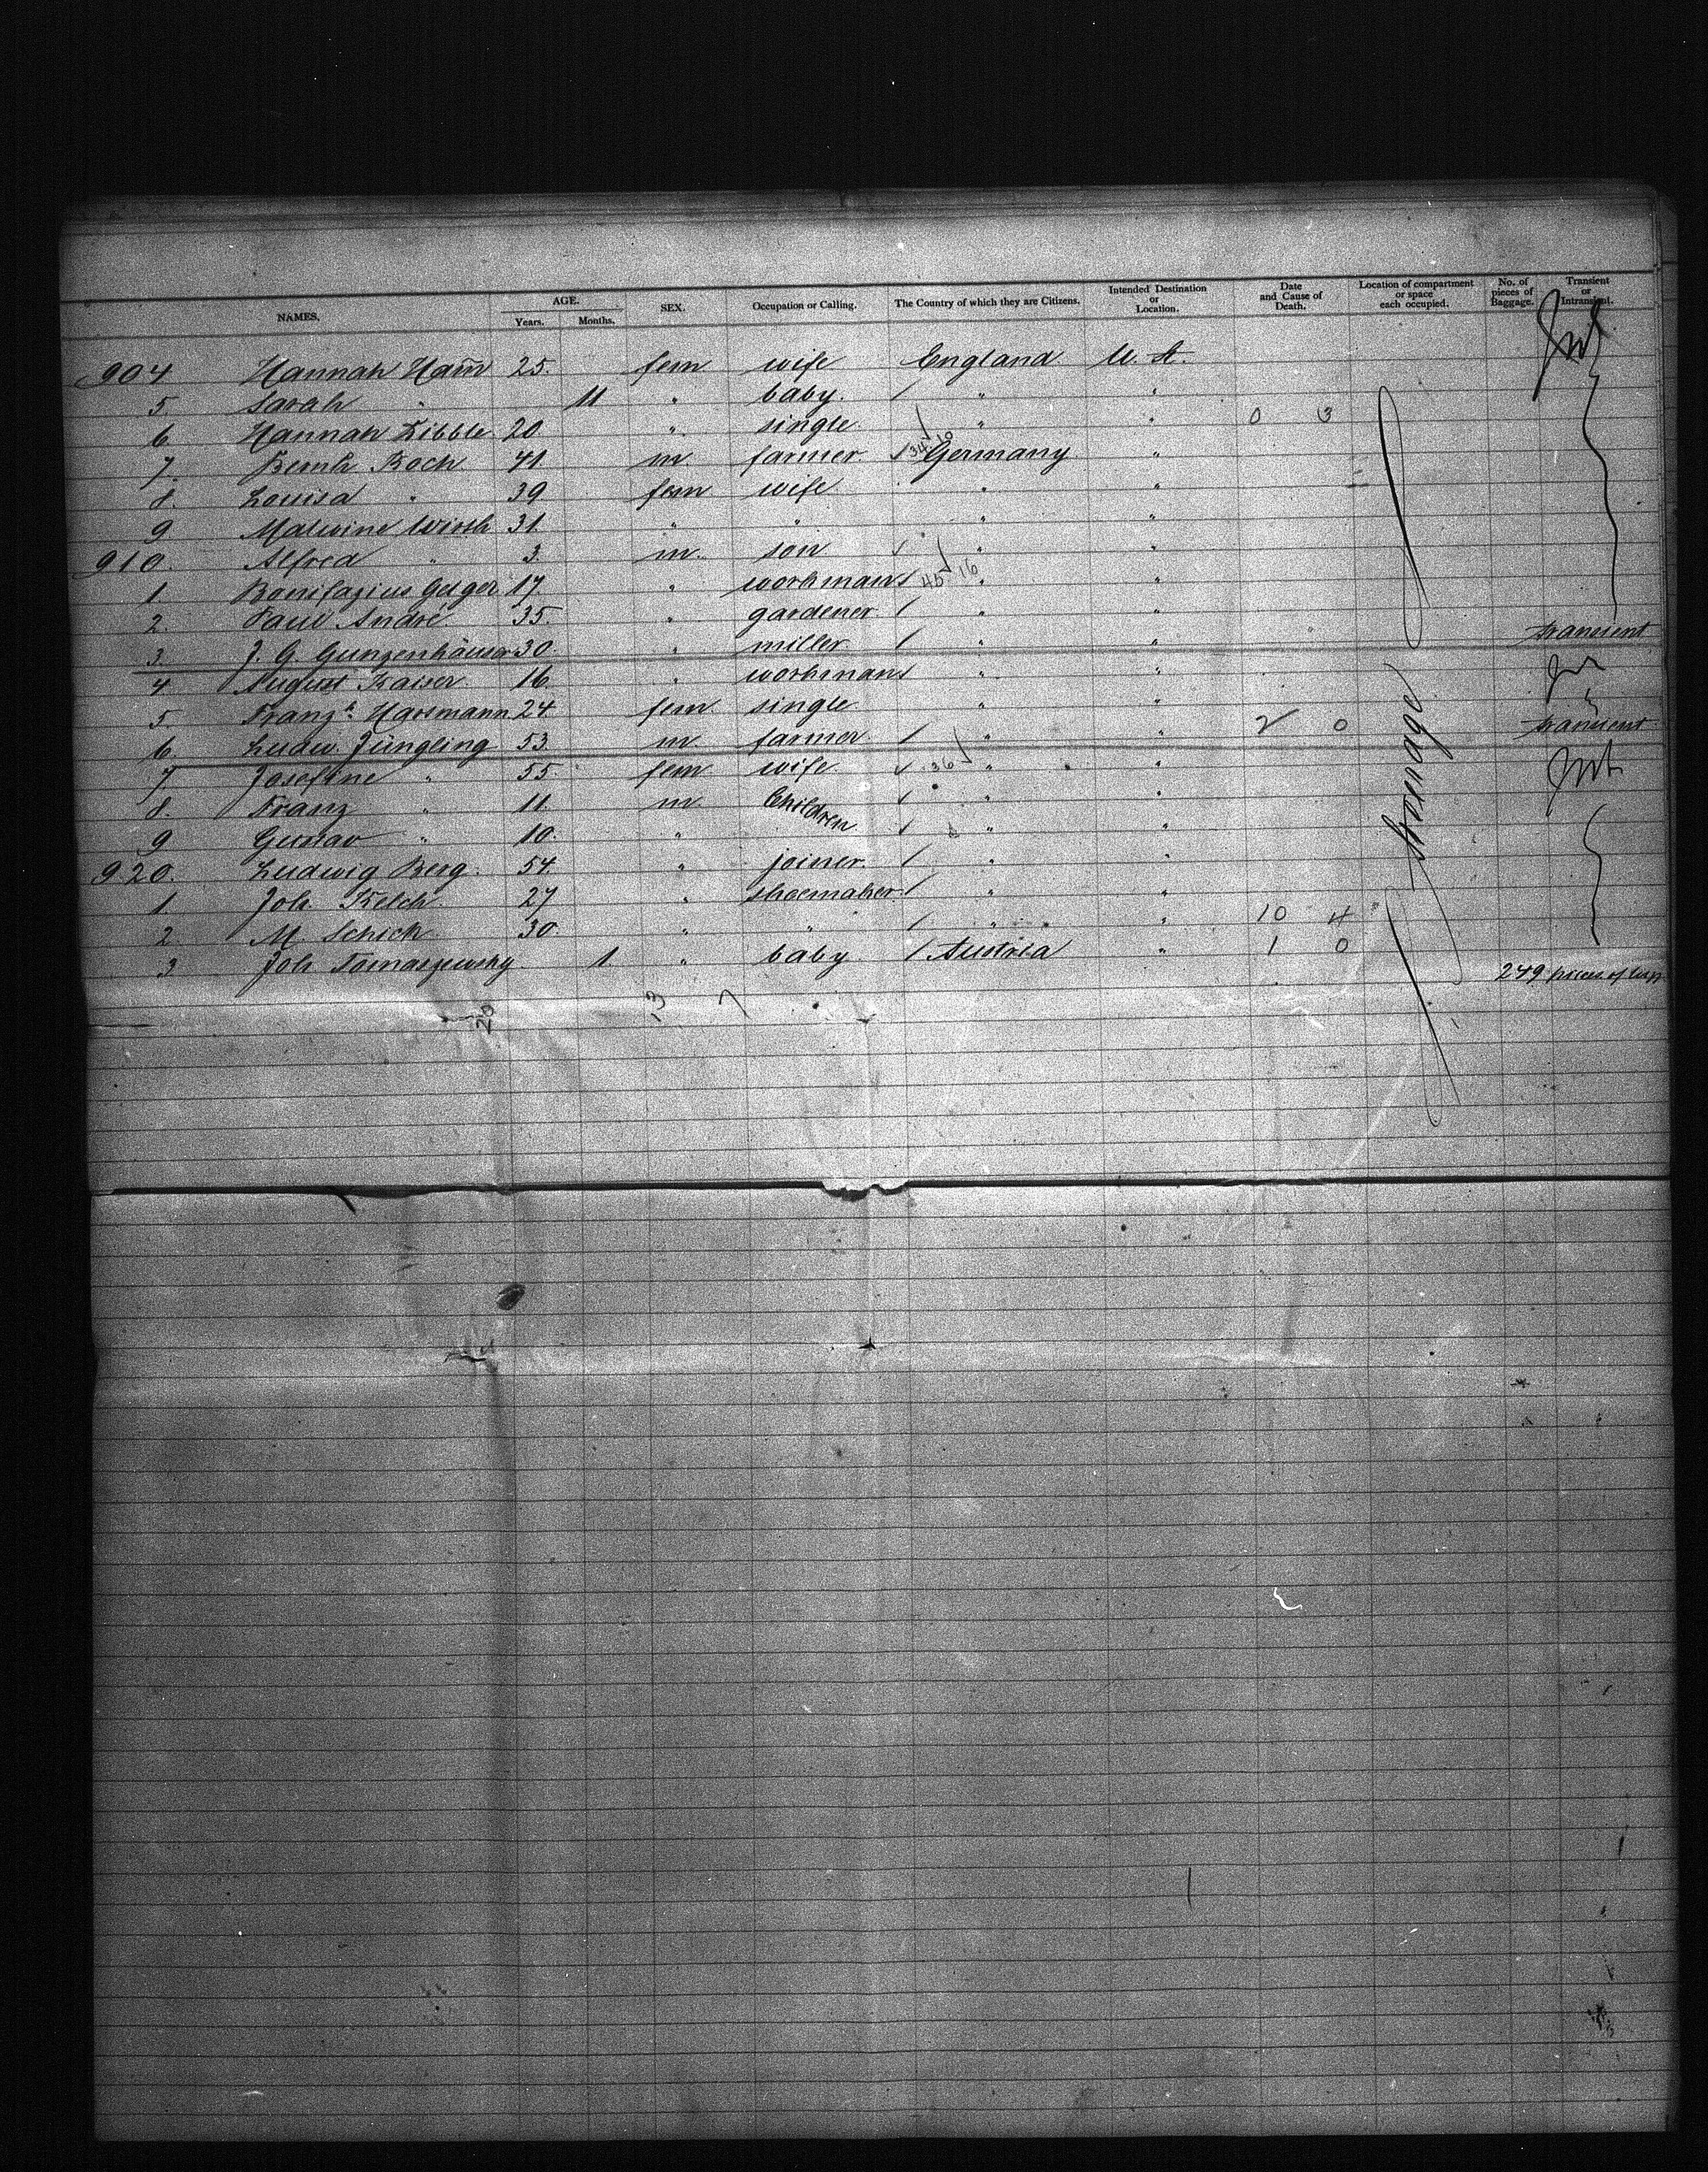 NAMES. AGE. Years. Months. SEX. Occupation or Calling. The Country of which they are Citizens. Intended Destination or Location. Date and Cause of Death. Location of compartment or space each occupied. No. of pieces of Baggage. Transient or Intransient.
904 Hannah Ham̄ 25. fem wife England U. St.
5. Sarah " 11 " baby. " "
6. Hannah Libble 20 " single " " 0 3
7. Bernh Koch 41. m. farmer. Germany "
8. Louisa " 39 fem wife " "
9 Malwine Wirth 31. " " " "
910. Alfred " 3. m. son " "
1 Bonifazius Geiger 17. " workman 45 16 " "
2. Paul André 35. " gardener " "
3. J. G. Gunzenhäuser 30 " miller " " transient
4 August Kaiser 16. " workman " "
5 Franz^a Harsmann 24. fem. single " "
6 Ludw. Jüngling 53. m. farmer. " " 2 0 transient
7. Josefine " 55. fem wife. 36 " "
8. Franz " 11. m. Children " "
9 Gustav " 10. " " "
920. Ludwig Berg. 54. " joiner. " "
1. Joh. Kelch 27 " shoemaker. " "
2 M. Schick 30. " " " " 10 4
3 Joh Tomaszewsky 1 " baby Austria " 1 0
Steerage
249 pieces of lugg
20 13 7